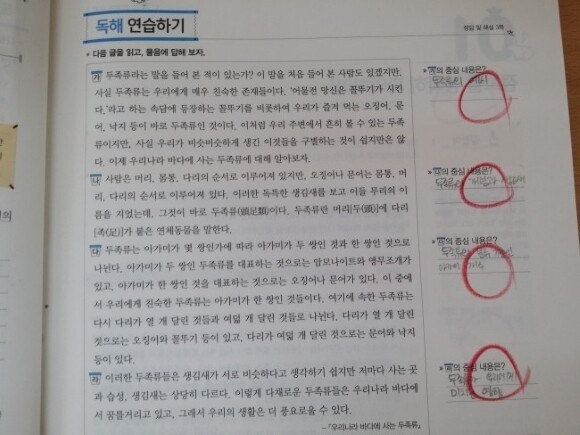 독해 연습하기
정답 및 해설 3쪽
• 다음 글을 읽고, 물음에 답해 보자.
가 두족류라는 말을 들어 본 적이 있는가? 이 말을 처음 들어 본 사람도 있겠지만,
사실 두족류는 우리에게 매우 친숙한 존재들이다. '어물전 망신은 꼴뚜기가 시킨
다.'라고 하는 속담에 등장하는 꼴뚜기를 비롯하여 우리가 즐겨 먹는 오징어, 문
어, 낙지 등이 바로 두족류인 것이다. 이처럼 우리 주변에서 흔히 볼 수 있는 두족
류이지만, 사실 우리가 비슷비슷하게 생긴 이것들을 구별하는 것이 쉽지만은 않
다. 이제 우리나라 바다에 사는 두족류에 대해 알아보자.
나 사람은 머리, 몸통, 다리의 순서로 이루어져 있지만, 오징어나 문어는 몸통, 머
리, 다리의 순서로 이루어져 있다. 이러한 독특한 생김새를 보고 이들 무리의 이
름을 지었는데, 그것이 바로 두족류(頭足類)이다. 두족류란 머리[두(頭)]에 다리
[족(足)]가 붙은 연체동물을 말한다.
다 두족류는 아가미가 몇 쌍인가에 따라 아가미가 두 쌍인 것과 한 쌍인 것으로
나뉜다. 아가미가 두 쌍인 두족류를 대표하는 것으로는 암모나이트와 앵무조개가
있고, 아가미가 한 쌍인 것을 대표하는 것으로는 오징어나 문어가 있다. 이 중에
서 우리에게 친숙한 두족류는 아가미가 한 쌍인 것들이다. 여기에 속한 두족류는
다시 다리가 열 개 달린 것들과 여덟 개 달린 것들로 나뉜다. 다리가 열 개 달린
것으로는 오징어와 꼴뚜기 등이 있고, 다리가 여덟 개 달린 것으로는 문어와 낙지
등이 있다.
라 이러한 두족류들은 생김새가 서로 비슷하다고 생각하기 쉽지만 저마다 사는 곳
과 습성, 생김새는 상당히 다르다. 이렇게 다채로운 두족류들은 우리나라 바다에
서 꿈틀거리고 있고, 그래서 우리의 생활은 더 풍요로울 수 있다.
- 「우리나라 바다에 사는 두족류」
가의 중심 내용은?
두족류의
나의 중심 내용은?
두족류의
다의 중심 내용은?
라의 중심 내용은?